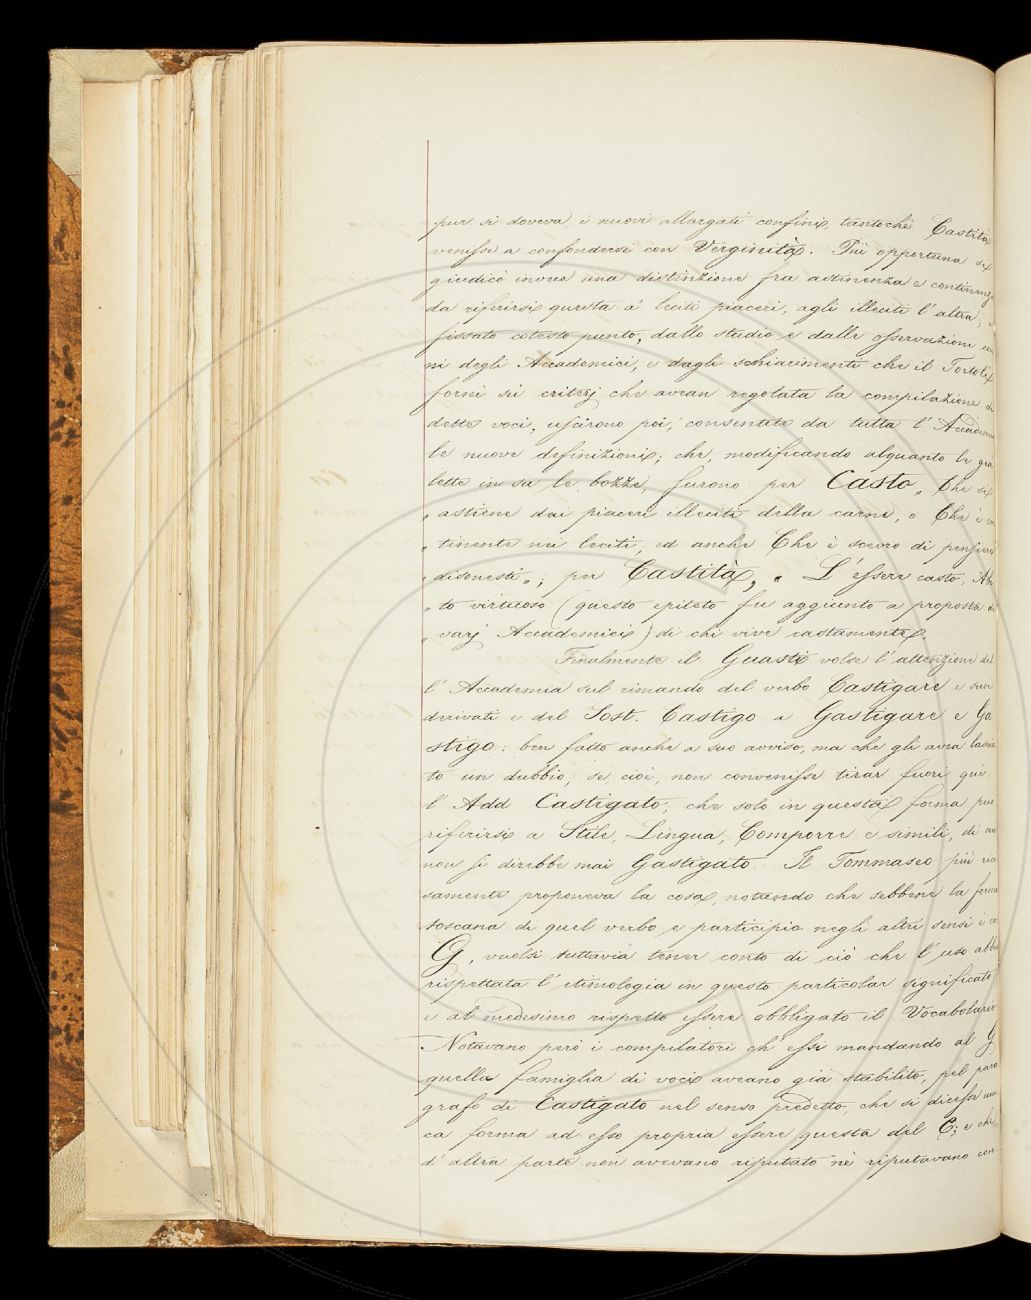 pur si doveva, i nuovi allargati confini, tantochè Castità
venisse a confondersi con Verginità. Più opportuna si
giudicò invece una distinzione fra astinenza e continenza
da riferirsi questa a' leciti piaceri, agli illeciti l'altra;
fissato cotesto punto, dallo studio e dalle osservazioni
ni degli Accademici, e dagli schiarimenti che il Tortoli
fornì su' criterj che avean regolata la compilazione di
dette voci, uscirono poi, consentite da tutta l'Accademia
le nuove definizioni; che, modificando alquanto le già
lette in su le bozze, furono: per Casto „ Che si
„ astiene dai piaceri illeciti della carne, o Che è con
„ tinente nei leciti, ed anche Che è scevro di pensieri
„ disonesti „; per Castità, „ L'essere casto, Abi
„ to virtuoso (questo epiteto fu aggiunto a proposta di
„ varj Accademici) di chi vive castamente.
Finalmente il Guasti volse l'attenzione del
l'Accademia sul rimando del verbo Castigare e suoi
derivati e del Sost. Castigo a Gastigare e Ga
stigo: ben fatto anche a suo avviso, ma che gli avea lascia
to un dubbio, se, cioè, non convenisse tirar fuori qui
l'Add. Castigato, che solo in questa forma può
riferirsi a Stile, Lingua, Comporre e simili, di cui
non si direbbe mai Gastigato. Il Tommaseo più
samente proponeva la cosa, notando che sebbene la forma
toscana di quel verbo e participio negli altri sensi è col
G, vuolsi tuttavia tener conto di ciò che l'uso abbia
rispettata l'etimologia in questo particolar significato,
e al medesimo rispetto essere obbligato il Vocabolario.
Notavano però i compilatori ch'essi mandando al G
quella famiglia di voci aveano già stabilito, pel para
grafo di Castigato nel senso predetto, che si dicesse uni
ca forma ad esso propria essere questa del C; e che
d'altra parte non avevano riputato nè riputavano con